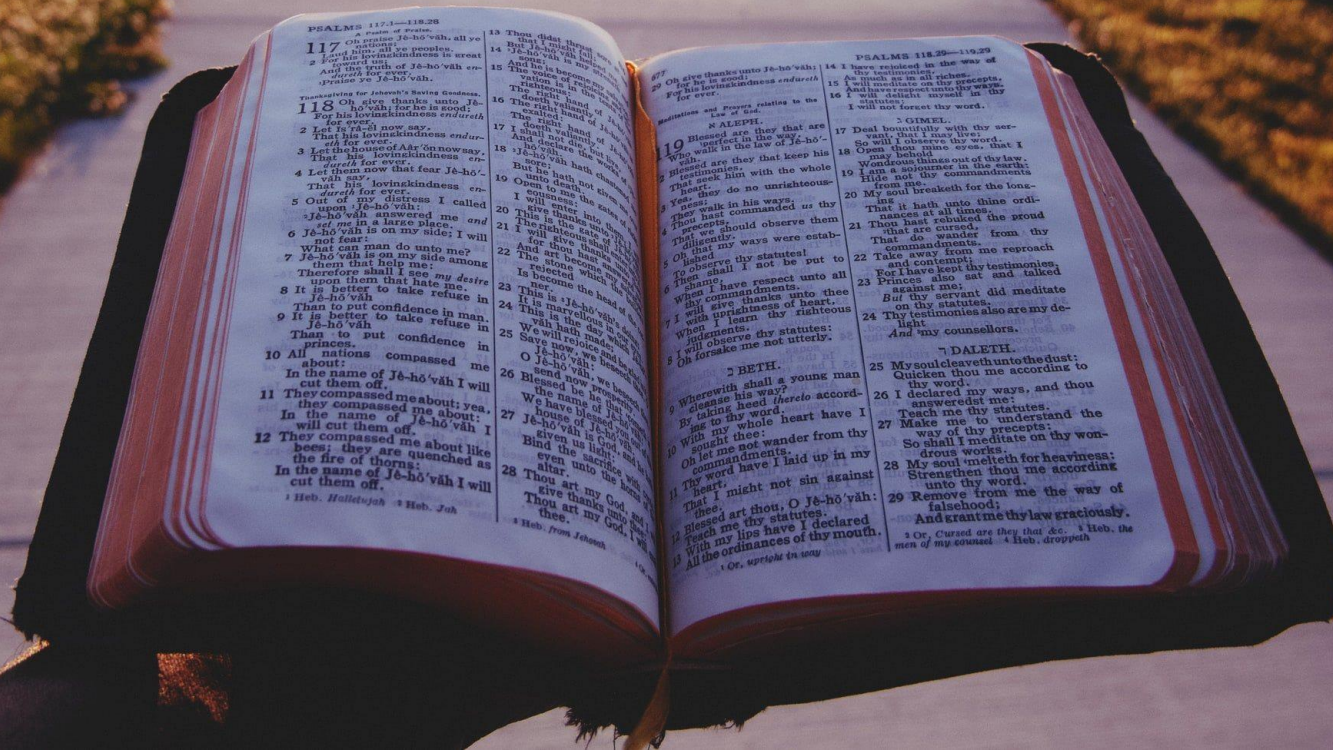 PSALMS 117.1—118.28
A Psalm of Praise.
117 Oh praise Jē-hō´vȧh, all ye
nations;
Laud him, all ye peoples.
2 For his lovingkindness is great
toward us;
And the truth of Jē-hō´vȧh
endureth for ever.
¹Praise ye Jē-hō´vȧh.
Thanksgiving for Jehovah's Saving Goodness.
118 Oh give thanks unto Jē-
hō´vȧh; for he is good;
For his lovingkindness endureth
for ever.
2 Let Ĭs´rȧ-ĕl now say,
That his lovingkindness endur-
eth for ever.
3 Let the house of Aâr´ȯn now say,
That his lovingkindness en-
dureth for ever.
4 Let them now that fear Jē-hō´-
vȧh say,
That his lovingkindness en-
dureth for ever.
5 Out of my distress I called
upon ²Jē-hō´vȧh:
²Jē-hō´vȧh answered me and
set me in a large place.
6 Jē-hō´vȧh is on my side; I will
not fear:
What can man do unto me?
7 Jē-hō´vȧh is on my side among
them that help me:
Therefore shall I see my desire
upon them that hate me.
8 It is better to take refuge in
Jē-hō´vȧh
Than to put confidence in man.
9 It is better to take refuge in
Jē-hō´vȧh
Than to put confidence in
princes.
10 All nations compassed me
about:
In the name of Jē-hō´vȧh I will
cut them off.
11 They compassed me about; yea,
they compassed me about:
In the name of Jē-hō´vȧh I
will cut them off.
12 They compassed me about like
bees; they are quenched as
the fire of thorns:
In the name of Jē-hō´vȧh I will
cut them off.
¹ Heb. Hallelujah ² Heb. Jah
13 Thou didst thrust
that I might fall
But Jē-hō´vȧh
14 Jē-hō´vȧh is my strength
song;
And he is become my
15 The voice of rejoicing
vation is in the
righteous:
The right hand
doeth valiantly
16 The right hand of
exalted:
The right hand of Jē-
doeth valiantly.
17 I shall not die, but
And declare the works
vȧh.
18 Jē-hō´vȧh hath chastened
sore;
But he hath not given
unto death.
19 Open to me the gates of
eousness:
I will enter into
give thanks unto
20 This is the gate of Jē-
The righteous shall
21 I will give thanks
for thou hast
And art become
22 The stone which the
rejected
Is become the head of the
ner.
23 This is Jē-hō´vȧh's
It is marvellous in our
24 This is the day which
vȧh hath made;
We will rejoice and be glad
25 Save now, we beseech
O Jē-hō´vȧh:
O Jē-hō´vȧh, we beseech
send now prosperity.
26 Blessed be he that
the name of Jē-
We have blessed you
house of Jē-hō´vȧh.
27 Jē-hō´vȧh is God, and he
given us light:
Bind the sacrifice with
even unto the horns
altar.
28 Thou art my God, and I
give thanks unto
Thou art my God, I
thee.
Heb. from Jehovah
677
PSALMS 118.29—119.29
29 Oh give thanks unto Jē-hō´vȧh;
for he is good;
For his lovingkindness endureth
for ever.
Meditations and Prayers relating to the
Law of God.
א ALEPH.
119 Blessed are they that are
perfect in the way,
Who walk in the law of Jē-hō´-
vȧh.
2 Blessed are they that keep his
testimonies,
That seek him with the whole
heart.
3 Yea, they do no unrighteous-
ness;
They walk in his ways.
4 Thou hast commanded us thy
precepts,
That we should observe them
diligently.
5 Oh that my ways were estab-
lished
To observe thy statutes!
6 Then shall I not be put to
shame,
When I have respect unto all
thy commandments.
7 I will give thanks unto thee
with uprightness of heart,
When I learn thy righteous
judgments.
8 I will observe thy statutes:
Oh forsake me not utterly.
ב BETH.
9 Wherewith shall a young man
cleanse his way?
By taking heed thereto accord-
ing to thy word.
10 With my whole heart have I
sought thee:
Oh let me not wander from thy
commandments.
11 Thy word have I laid up in my
heart,
That I might not sin against
thee.
12 Blessed art thou, O Jē-hō´vȧh:
Teach me thy statutes.
13 With my lips have I declared
All the ordinances of thy mouth.
¹ Or, upright in way
14 I have rejoiced in the way of
thy testimonies,
As much as in all riches.
15 I will meditate on thy precepts,
And have respect unto thy ways.
16 I will delight myself in thy
statutes:
I will not forget thy word.
ג GIMEL.
17 Deal bountifully with thy ser-
vant, that I may live;
So will I observe thy word.
18 Open thou mine eyes, that I
may behold
Wondrous things out of thy law.
19 I am a sojourner in the earth:
Hide not thy commandments
from me.
20 My soul breaketh for the long-
ing
That it hath unto thine ordi-
nances at all times.
21 Thou hast rebuked the proud
²that are cursed,
That do wander from thy
commandments.
22 Take away from me reproach
and contempt;
For I have kept thy testimonies.
23 Princes also sat and talked
against me;
But thy servant did meditate
on thy statutes.
24 Thy testimonies also are my de-
light
And ³my counsellors.
ד DALETH.
25 My soul cleaveth unto the dust:
Quicken thou me according to
thy word.
26 I declared my ways, and thou
answeredst me:
Teach me thy statutes.
27 Make me to understand the
way of thy precepts:
So shall I meditate on thy won-
drous works.
28 My soul ⁴melteth for heaviness:
Strengthen thou me according
unto thy word.
29 Remove from me the way of
falsehood;
And grant me thy law graciously.
² Or, Cursed are they that &c. ³ Heb. the
men of my counsel ⁴ Heb. droppeth